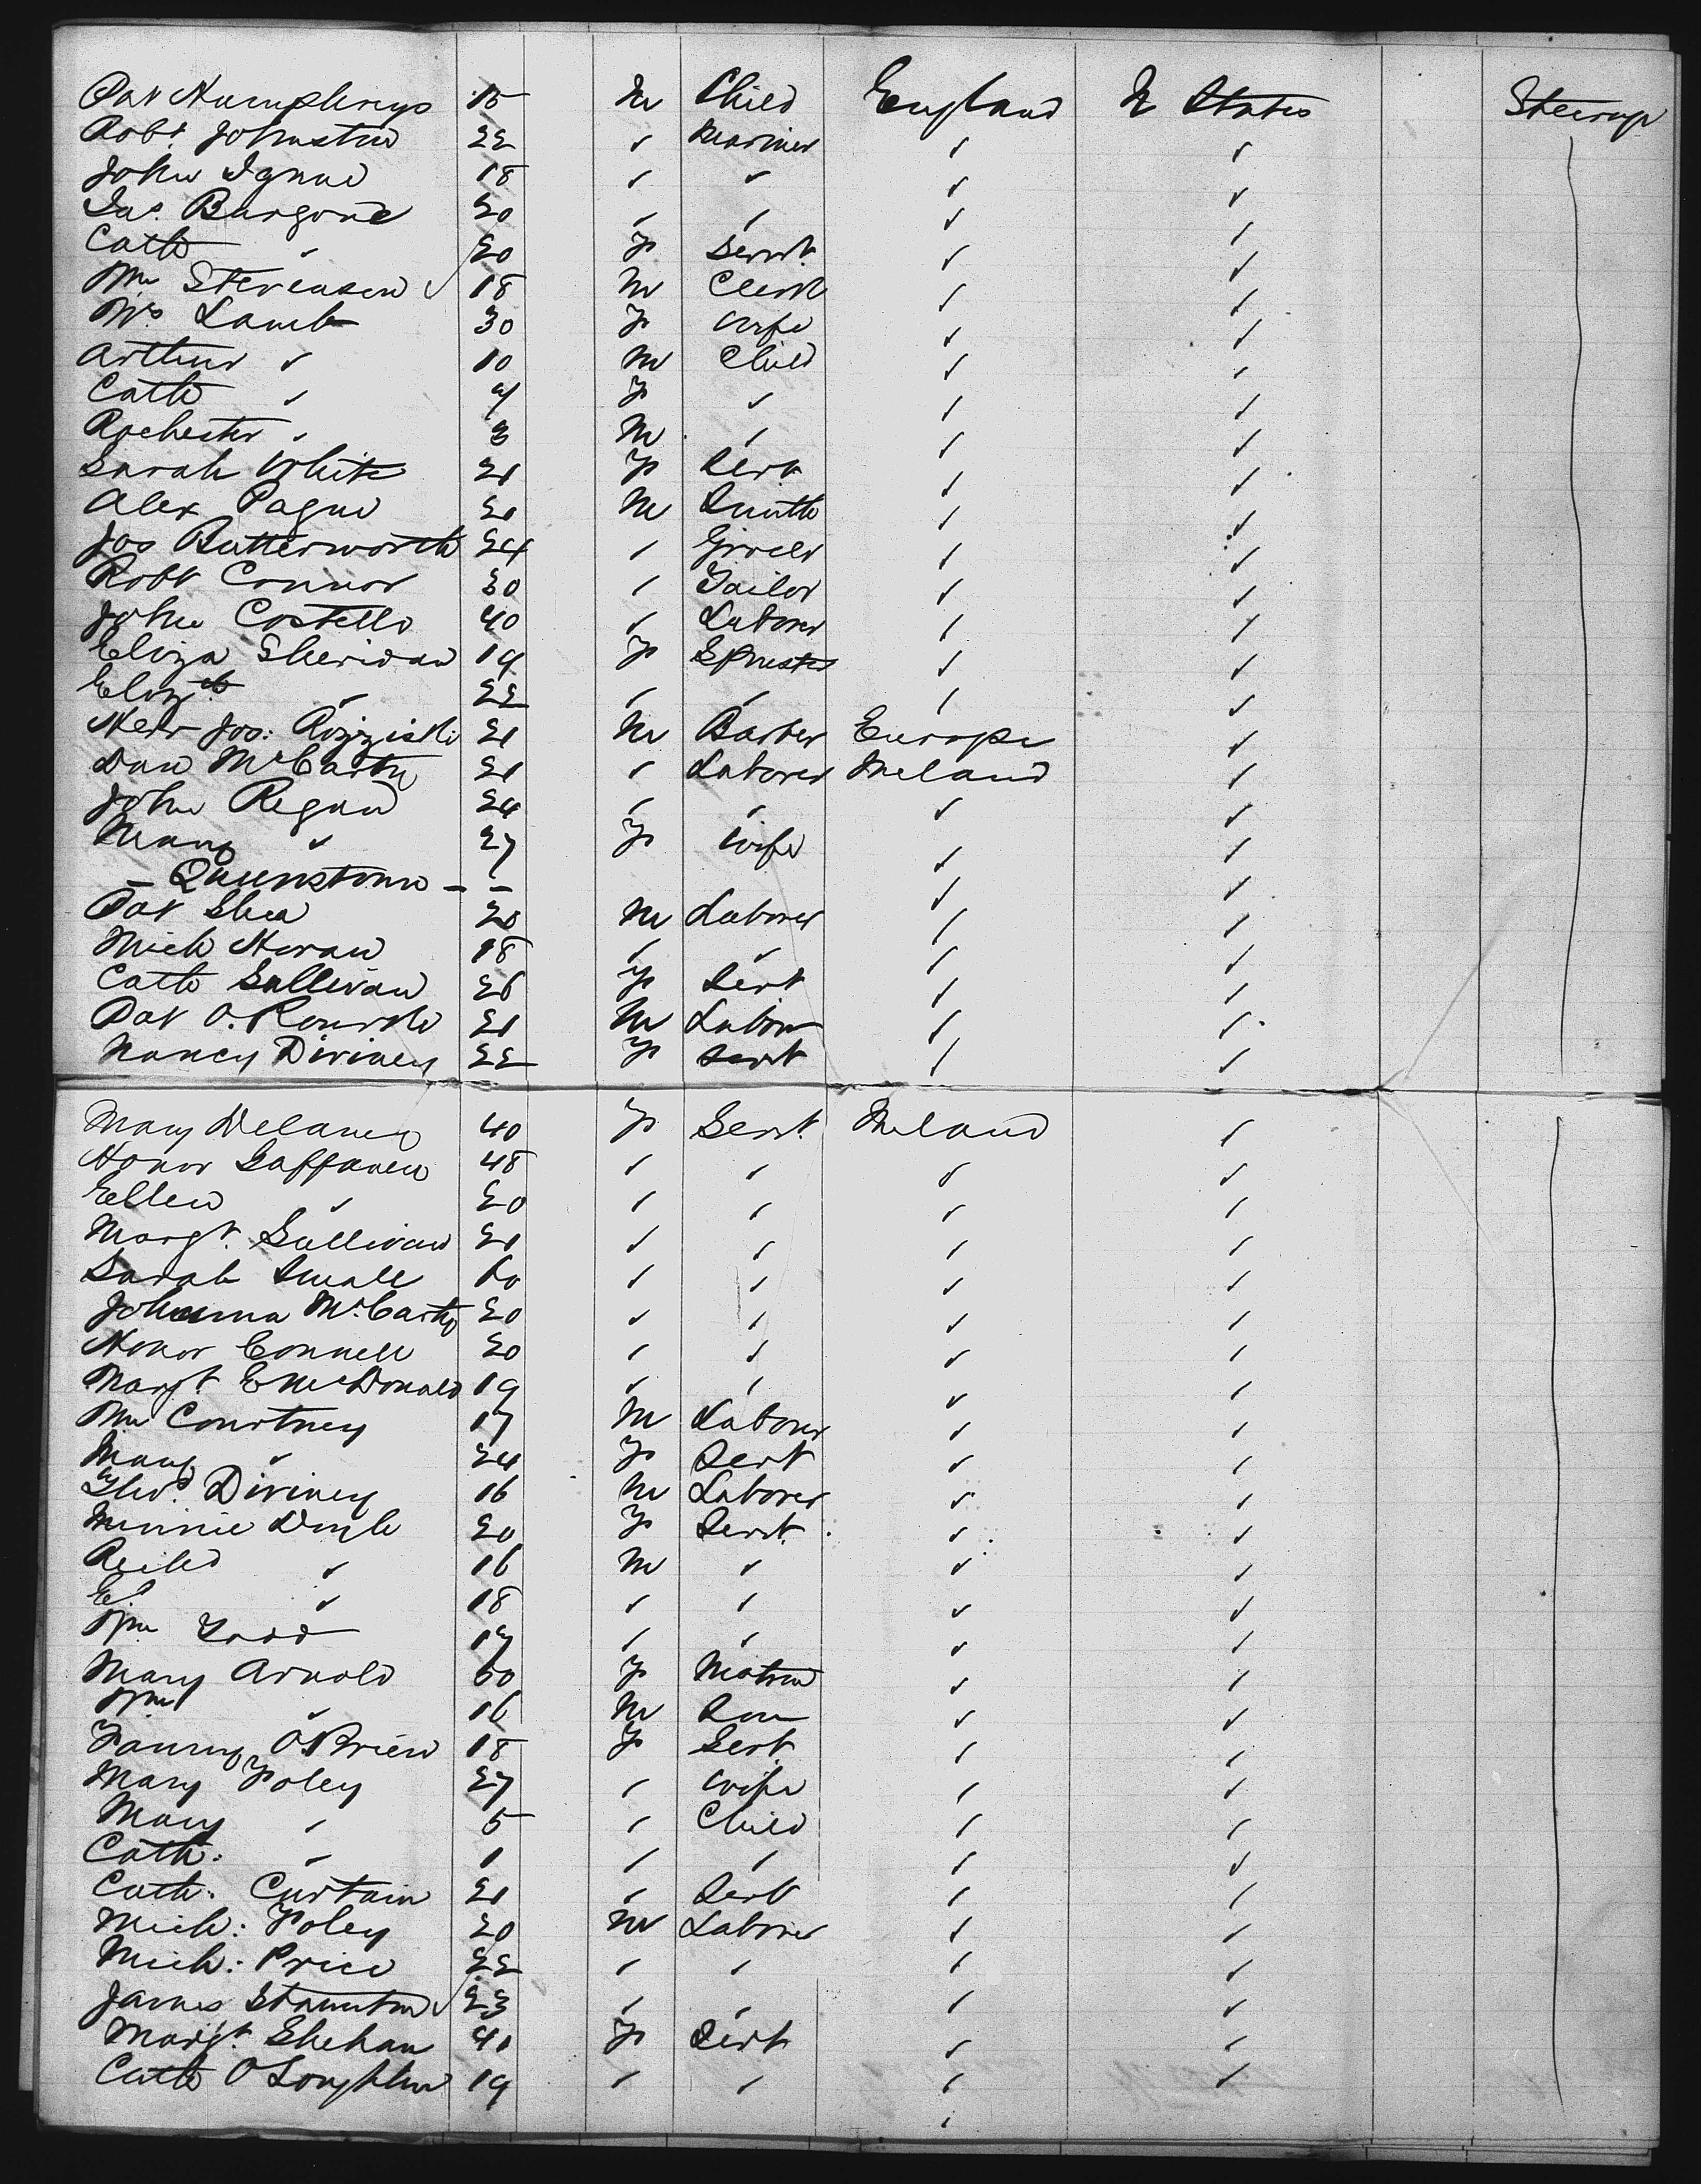 Pat Humphreys 15 M Child England U States Steerage
Robt. Johnston 22 " Mariner " "
John 18 " " " "
Jas. 20 " " " "
Cath " 20 F Servt. " "
Wm Stevenson 18 M Clerk " "
Mrs Lamb 30 F Wife " "
Arthur " 10 M Child " "
Cath " F " " "
Rochester " 3 M " " "
Sarah White 21 F Servt " "
Alex 21 M Smith " "
Jos Butterworth 24 " Grocer " "
Robt Connor 30 " Tailor " "
John Costello 40 " Laborer " "
Eliza Sheridan 19 F Spinster " "
Elizth " 22 " " " "
Jos: 21 M Barber Europe "
Dan McCarthy 21 " Laborer Ireland "
John Regan 24 " " " "
Mary " 27 F Wife " "
- Queenstown - - " "
Pat Shea 20 M Laborer " "
Mich Horan 18 " " " "
Cath Sullivan 26 F Servt " "
Pat O. Rourke 21 M Labor " "
Nancy Diviney 22 F Servt " "
Mary Delaney 40 F Servt. Ireland "
Honor Gaffaney 48 " " " "
Ellen " 20 " " " "
Margt. Sullivan 21 " " " "
Sarah Small 60 " " " "
Johanna McCarthy 20 " " " "
Honor Connell 20 " " " "
Margt. E McDonald 19 " " " "
Wm Courtney 17 M Laborer " "
Mary " 24 F Servt " "
Thos. Diviney 16 M Laborer " "
Minnie Doyle 20 F Servt. " "
Richd " 16 M " " "
Ed " 18 " " " "
Wm Todd 17 " " " "
Mary Arnold 60 F Matron " "
Wm " 16 M Son " "
Fanny O'Brien 18 F Servt. " "
Mary Foley 27 " Wife " "
Mary " 5 " Child " "
Cath: " 1 " " " "
Cath: Curtain 21 " Servt " "
Mich: Foley 20 M Laborer " "
Mich: Price 22 " " " "
James Staunton 23 " " " "
Margt. Shehan 41 F Servt " "
Cath O'Loughlin 19 " " " "